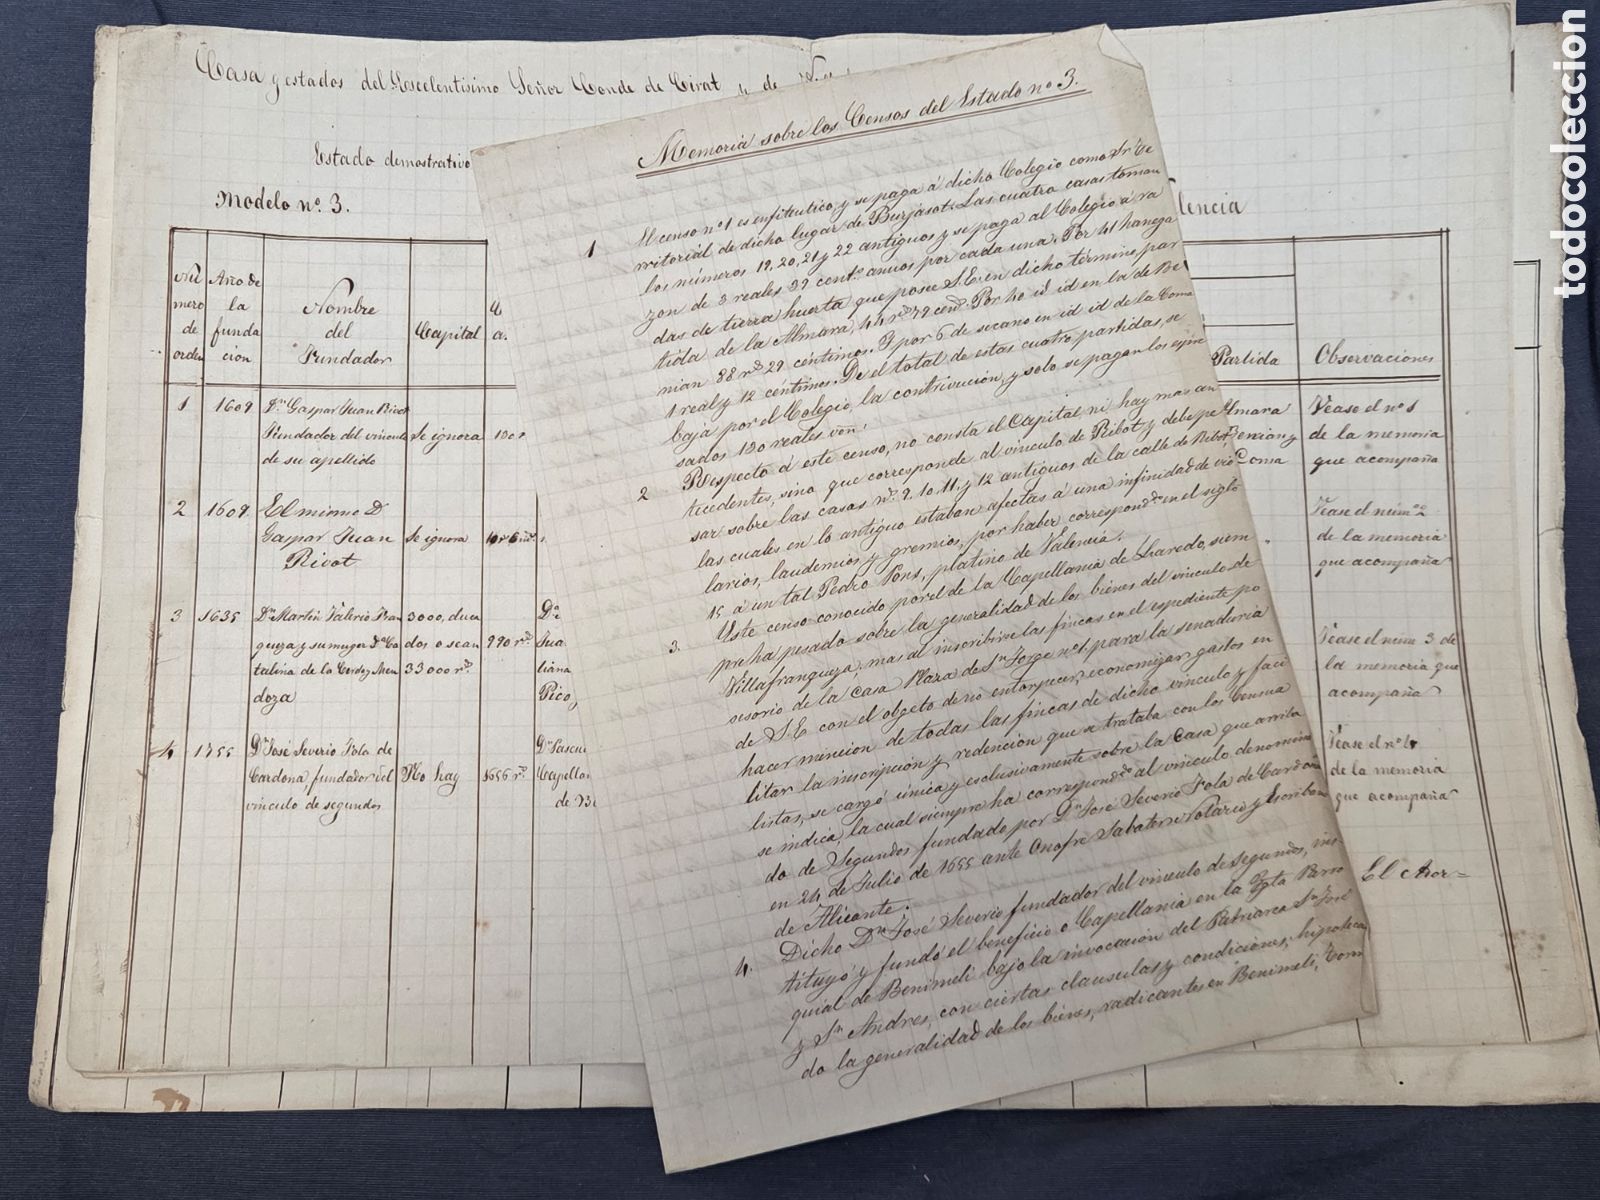 Casa y estados del Escelentisimo Señor Conde de Cirat y de
Estado demostrativo
Modelo nº. 3.
lencia
Nú
mero
de
orden
Año de
la
funda
cion
Nombre
del
Fundador
Capital
Partida
Observaciones
1
1609
Dn. Gaspar Juan Ribot
Fundador del vinculo
de su apellido
Se ignora
Vease el nº 1
de la memoria
que acompaña
2
1609
El mismo D
Gaspar Juan
Ribot
Se ignora
Vease el núm.º 2
de la memoria
que acompaña
3
1635
Dn. Martin Valerio Fran
queza y su muger Dª Ca
talina de la Cerda y Men
doza
3000, duca
dos o sean
33000 rs.
990 rs.
Dª
Jua
liana
Pico,
Vease el num 3 de
la memoria que
acompaña
4
1755
Dn. José Severio Fola de
Cardona, fundador del
vinculo de segundos
No hay
1656 rs.
Dn. Pascu
Capellan
de B
Vease el nº 4
de la memoria
que acompaña
El Aor=
Memoria sobre los Censos del Estado nº 3.
1 El censo nº 1 es enfiteutico, y se paga á dicho Colegio como Sr. Te
rritorial de dicho lugar de Burjasot. Las cuatro casas toman
los números 19, 20, 21 y 22 antiguos y se paga al Colegio á ra
zon de 3 reales 39 cents. anuos por cada una. Por 41 hanega
das de tierra huerta que posee S.E. en dicho término, par
tida de la Almara, 44 rs. 79 cent. Por 40 id id en la de Be
nian 88 rs. 29 centimos. Y por 6 de secano en id id de la Coma
1 real y 12 centimos. De el total de estas cuatro partidas, se
baja por el Colegio, la contrivución, y solo se pagan los espre
sados 130 reales vón.
2 Respecto á este censo, no consta el Capital, ni hay mas an
tecedentes, sino que corresponde al vinculo de Ribot y debe pe
sar sobre las casas nos. 9, 10, 11, y 12 antiguos de la calle de Ribot
las cuales en lo antiguo estaban afectas á una infinidad de
larios, laudemios y gremios, por haber correspond.do en el siglo
15, á un tal Pedro Pons, platino de Valencia.
3. Este censo conocido por el de la Capellania de Laredo, siem
pre ha pesado sobre la generalidad de los bienes del vinculo de
Villafranqueza; mas al inscribirse las fincas en el espediente po
sesorio de la Casa Plaza de Sn. Jorge nº 1, para la senaduria
de S.E. con el objeto de no entorpecer, economizar gastos en
hacer mencion de todas las fincas de dicho vinculo y faci
litar la inscripcion y redencion que se trataba con los Censua
listas, se cargó única y esclusivamente sobre la Casa que arriba
se indica, la cual siempre ha correspond.do al vinculo denomina
do de Segundos fundado por Dn. José Severio Fola de Cardona
en 24 de Julio de 1655 ante Onofre Sabater Notario y Escribano
de Alicante.
4. Dicho Dn. José Severio fundador del vinculo de segundos, ins
tituyó y fundó el beneficio o Capellania en la Ygla Parro
quial de Benimeli bajo la invocación del Patriarca Sn. José
y Sn. Andres, con ciertas clausulas y condiciones, hipoteca
do la generalidad de los bienes, radicantes en Benimeli,
Almara
Benian y
Coma
todocoleccion